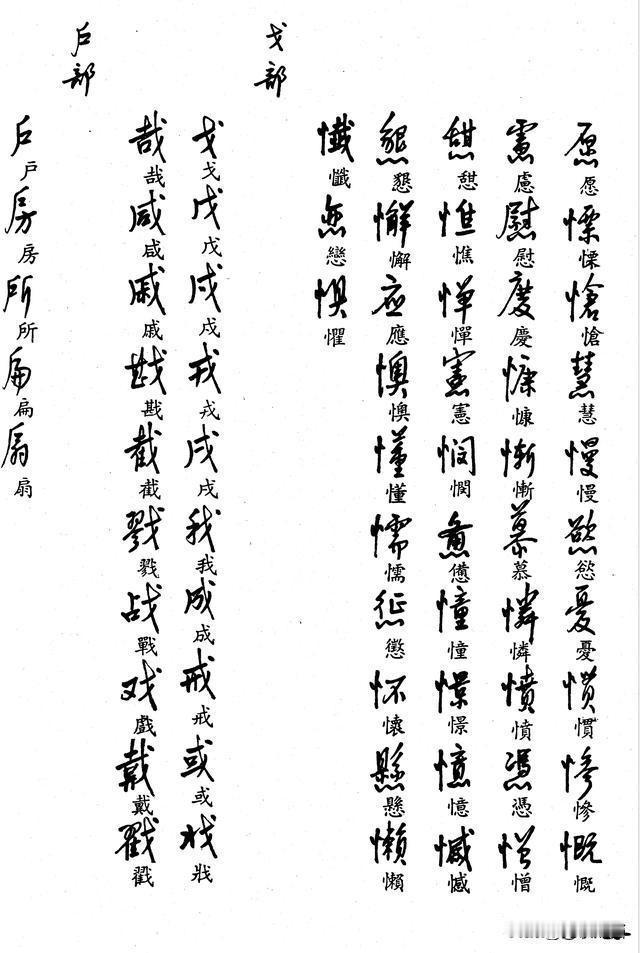 愿愿慄慄愴愴慧慧慢慢慾慾憂憂慣慣慘慘慨慨
慮慮慰慰慶慶慷慷慚慚慕慕憐憐憤憤憑憑憎憎
憇憇憔憔憚憚憲憲悯憫憊憊憧憧憬憬憶憶憾憾
懇懇懈懈应應懊懊懂懂懦懦惩懲怀懷懸懸懶懶
懺懺恋戀惧懼
戈部
戈戈戊戊戍戍戎戎戌戌我我成成戒戒或或戕戕
哉哉咸咸戚戚戡戡截截戮戮战戰戏戲戴戴戳戳
户部
户户房房所所扁扁扇扇